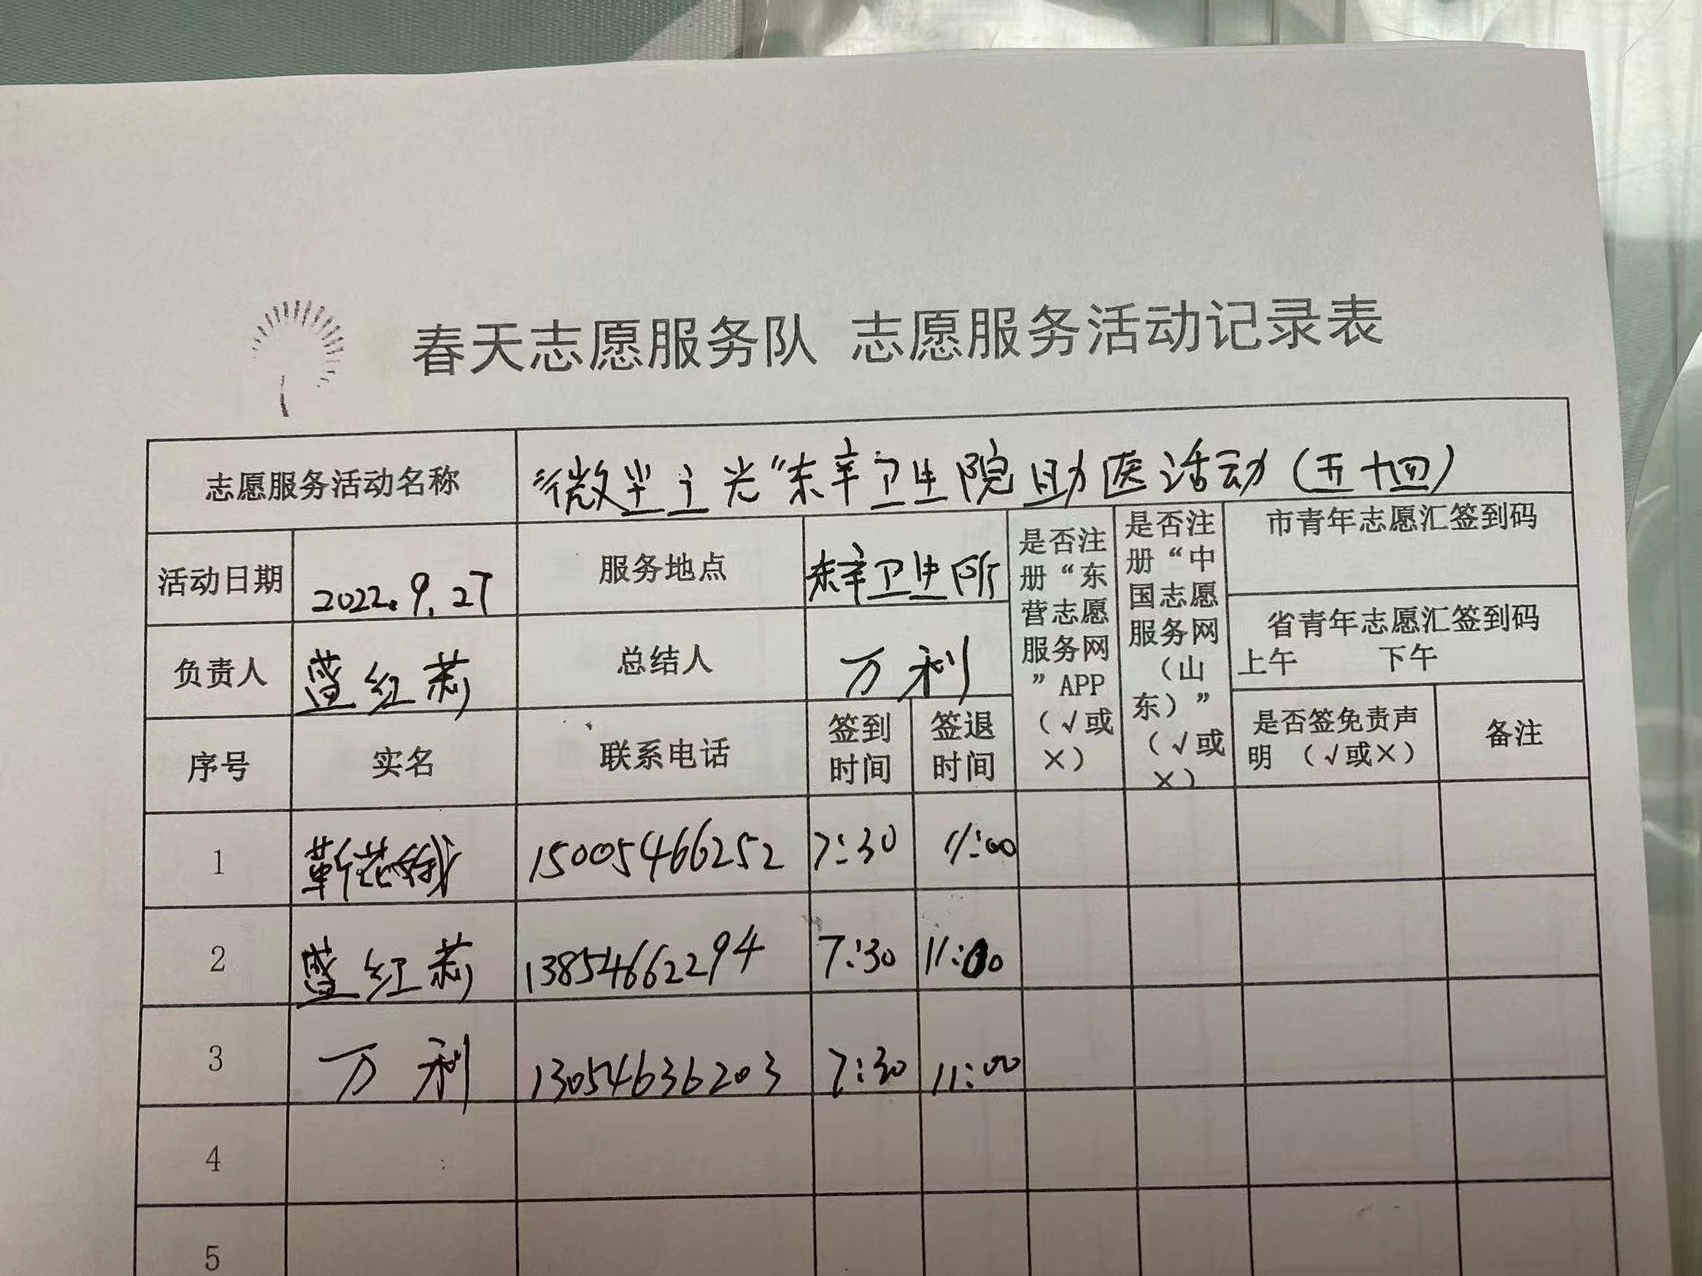 春天志愿服务队 志愿服务活动记录表
志愿服务活动名称 “微尘之光”东辛卫生院助医活动（五十四）
活动日期 2022.9.27 服务地点 东辛卫生所
是否注册“东营志愿服务网”APP（√或×）
是否注册“中国志愿服务网（山东）”（√或×）
市青年志愿汇签到码
省青年志愿汇签到码
上午 下午
负责人 蓝红莉 总结人 万利
序号 实名 联系电话 签到时间 签退时间 是否签免责声明（√或×） 备注
1 靳花娥 15005466252 7:30 11:00
2 蓝红莉 13854662294 7:30 11:00
3 万利 13054636203 7:30 11:00
4
5